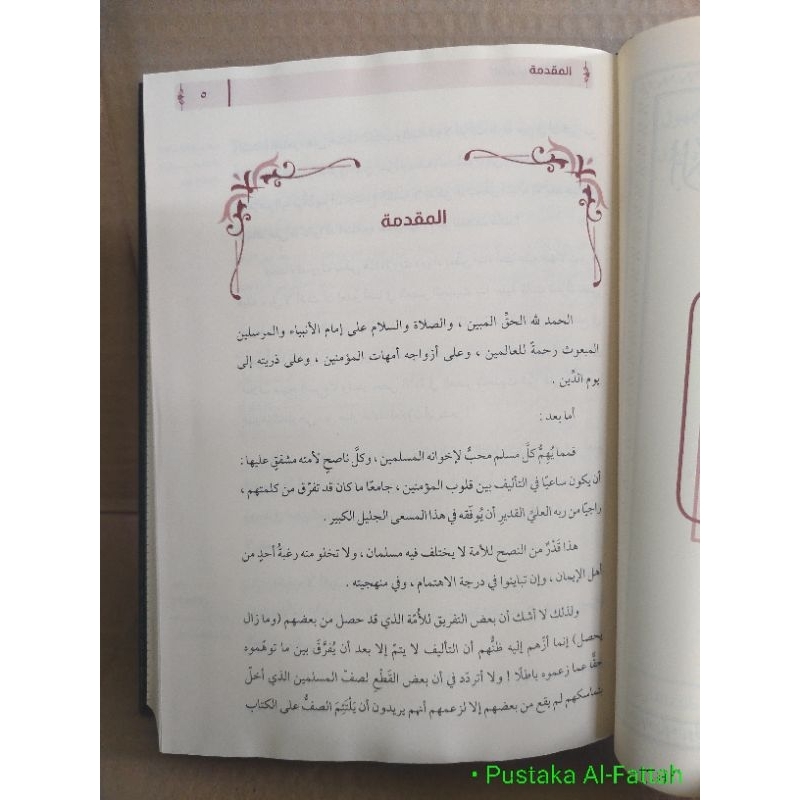 المقدمة
٥
المقدمة
الحمد لله الحقِّ المبين ، والصلاة والسلام على إمام الأنبياء والمرسلين
المبعوث رحمةً للعالمين ، وعلى أزواجه أمهات المؤمنين ، وعلى ذريته إلى
يوم الدِّين .
أما بعد :
فمما يُهِمُّ كلَّ مسلم محبٍّ لإخوانه المسلمين ، وكلَّ ناصحٍ لأمته مشفقٍ عليها :
أن يكون ساعيًا في التأليف بين قلوب المؤمنين ، جامعًا ما كان قد تفرّق من كلمتهم ،
راجيًا من ربه العليِّ القديرِ أن يُوفّقه في هذا المسعى الجليل الكبير .
هذا قَدْرٌ من النصح للأمة لا يختلف فيه مسلمان ، ولا تخلو منه رغبةُ أحدٍ من
أهل الإيمان ، وإن تباينوا في درجة الاهتمام ، وفي منهجيته .
ولذلك لا أشك أن بعض التفريق للأمّة الذي قد حصل من بعضهم (وما زال
يحصل) إنما أزّهم إليه ظنُّهم أن التأليف لا يتمّ إلا بعد أن يُفرَّقَ بين ما توهّموه
حقًّا عما زعموه باطلًا ! ولا أتردّد في أن بعض القَطْعِ لصفّ المسلمين الذي أخلّ
بتماسكهم لم يقع من بعضهم إلا لزعمهم أنهم يريدون أن يَلْتَئِمَ الصفُّ على الكتاب
• Pustaka Al-Fattah